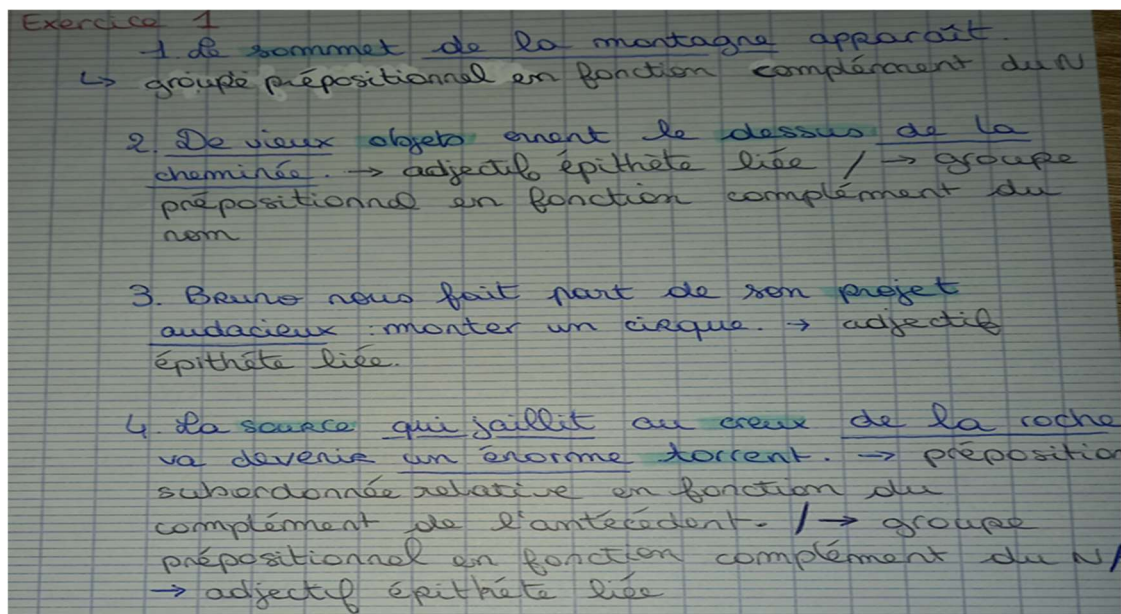 Exercice 1
1. Le sommet de la montagne apparaît.
↳ groupe prépositionnel en fonction complément du N
2. De vieux objets ornent le dessus de la
cheminée. → adjectif épithète liée / → groupe
prépositionnel en fonction complément du
nom
3. Bruno nous fait part de son projet
audacieux : monter un cirque. → adjectif
épithète liée.
4. La source qui jaillit au creux de la roche
va devenir un énorme torrent. → prépositio
subordonnée relative en fonction du
complément de l'antécédent. / → groupe
prépositionnel en fonction complément du N/
→ adjectif épithète liée